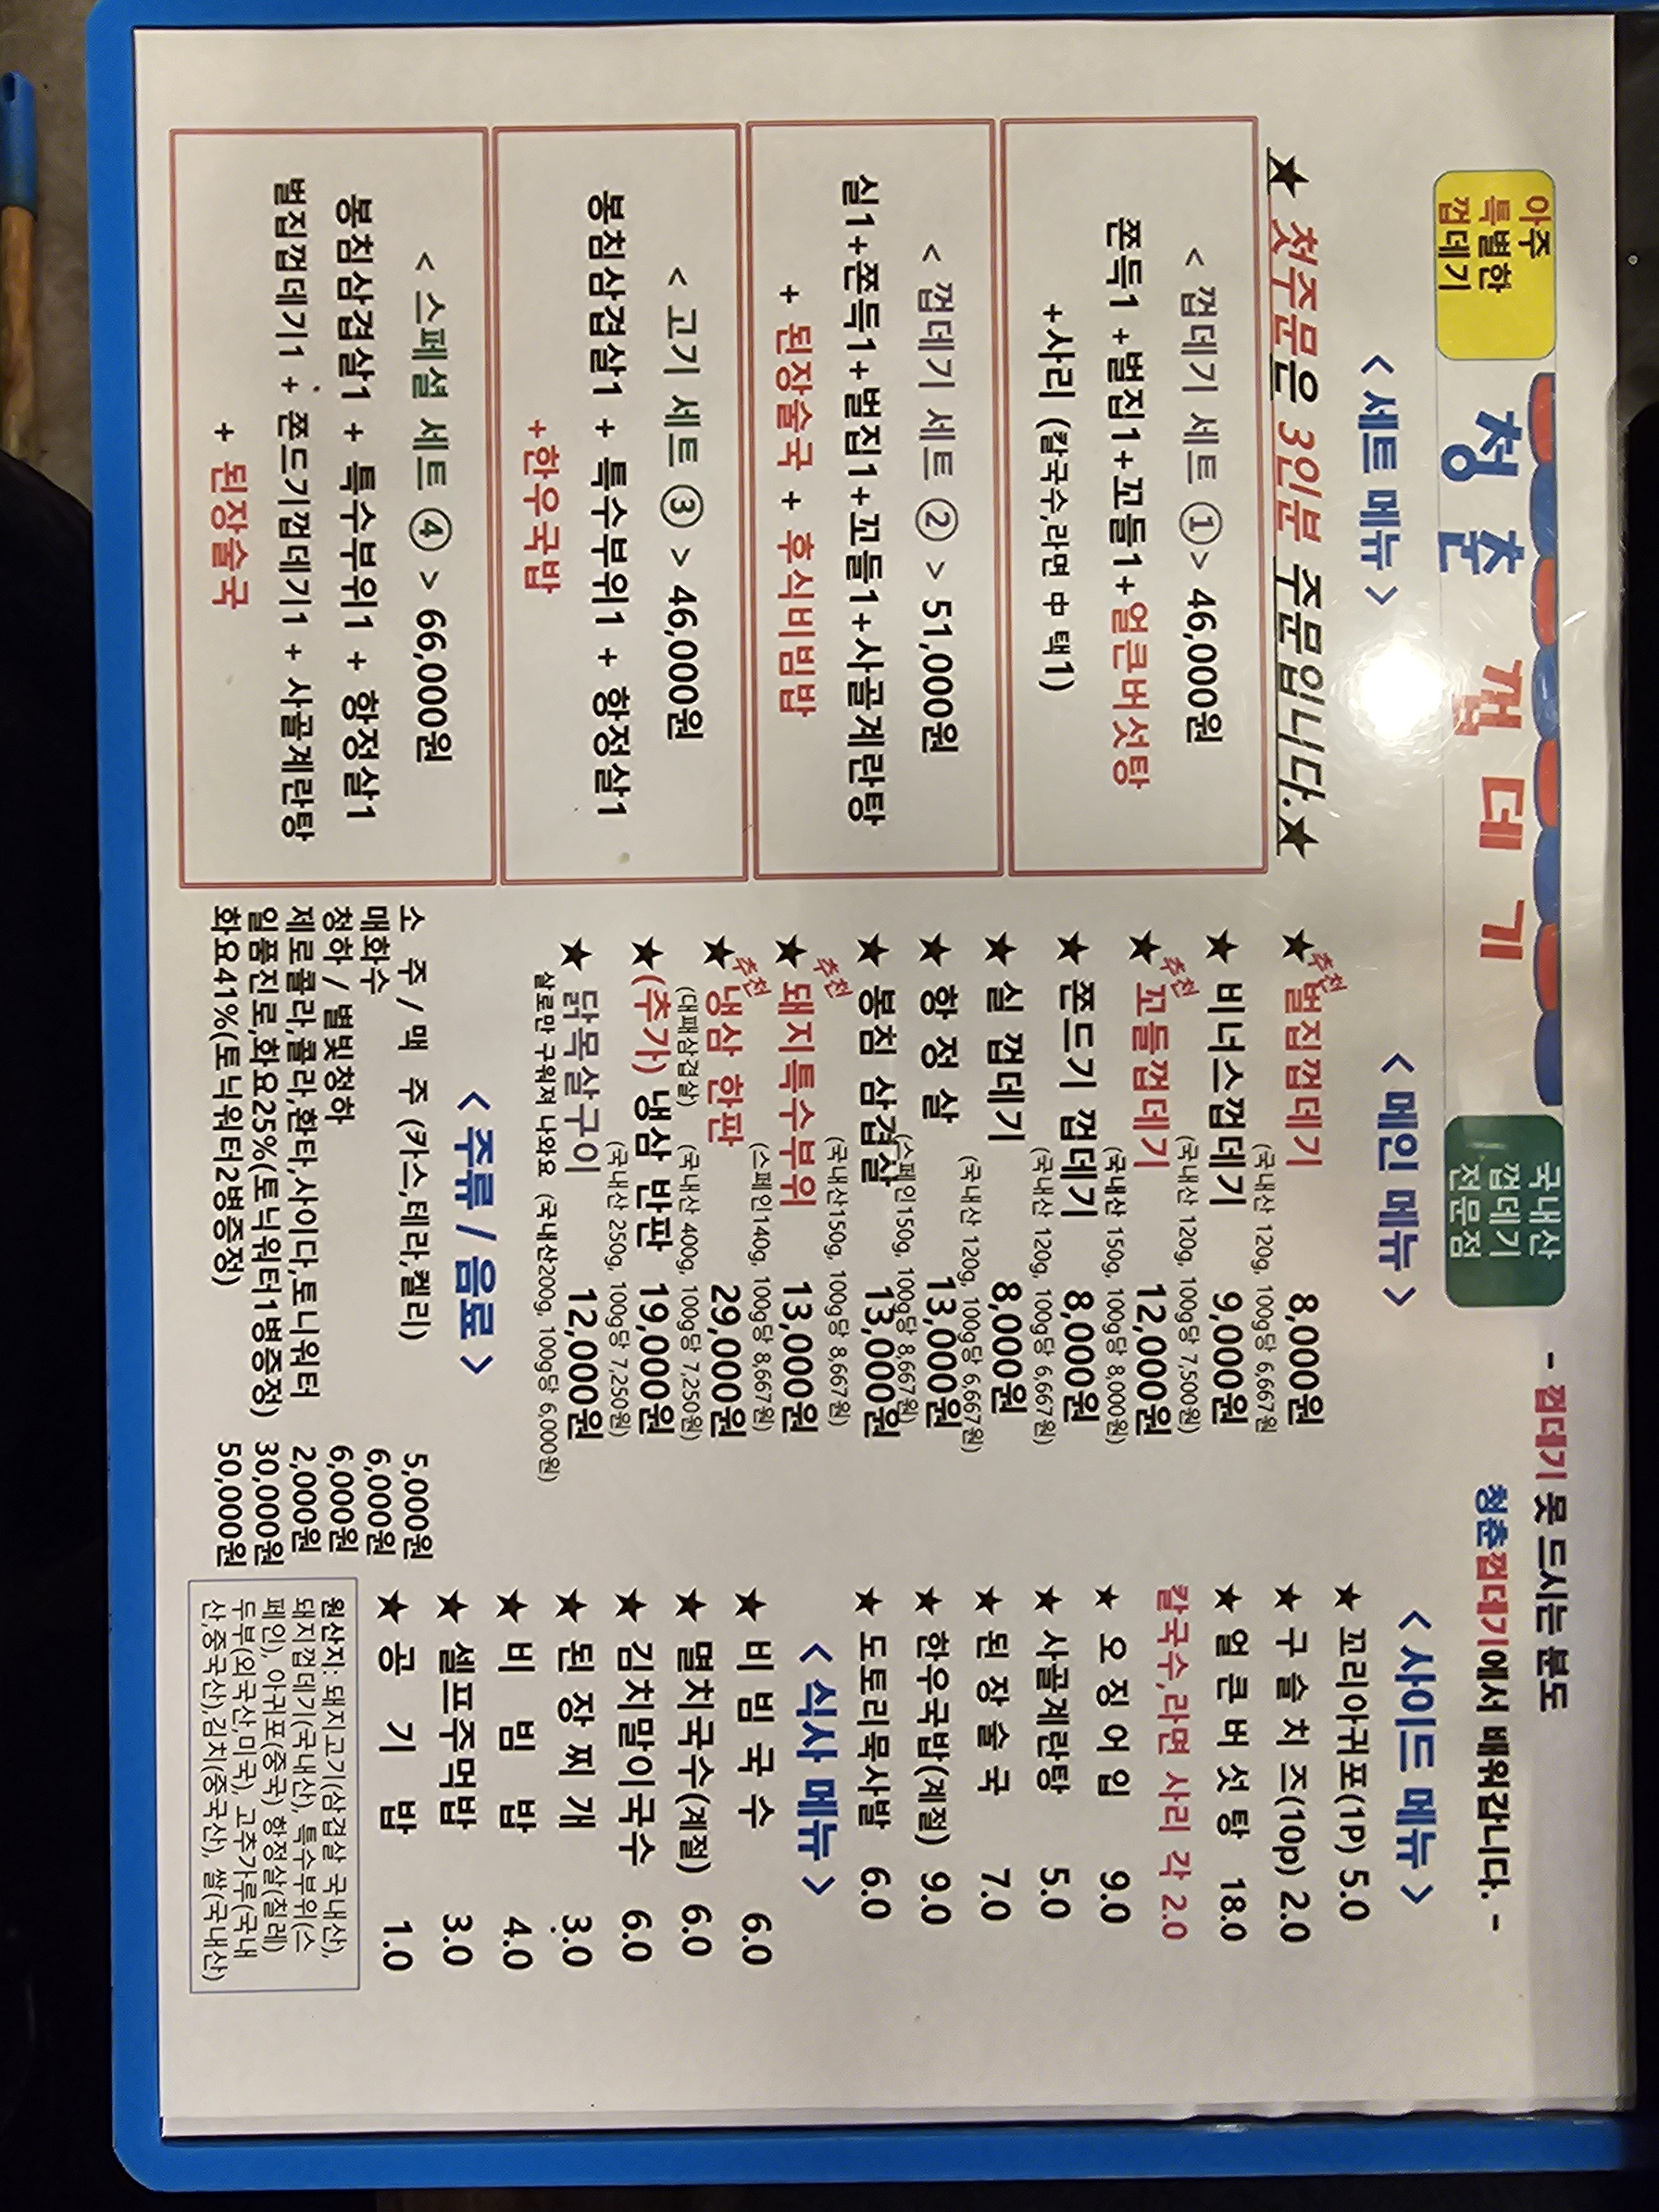 아주
특별한
껍데기
청춘 껍데기
국내산
껍데기
전문점
- 껍데기 못 드시는 분도
청춘껍데기에서 배워갑니다. -
< 세트 메뉴 >
★ 첫주문은 3인분 주문입니다.★
< 껍데기 세트 ① > 46,000원
쫀득1 +벌집1+꼬들1+얼큰버섯탕
+사리 (칼국수,라면 中 택1)
< 껍데기 세트 ② > 51,000원
실1+쫀득1+벌집1+꼬들1+사골계란탕
+ 된장술국 + 후식비빔밥
< 고기 세트 ③ > 46,000원
봉침삼겹살1 + 특수부위1 + 항정살1
+한우국밥
< 스페셜 세트 ④ > 66,000원
봉침삼겹살1 + 특수부위1 + 항정살1
벌집껍데기1 + 쫀드기껍데기1 + 사골계란탕
+ 된장술국
< 메인 메뉴 >
추천
★ 벌집껍데기 8,000원
(국내산 120g, 100g당 6,667원
★ 비너스껍데기 9,000원
(국내산 120g, 100g당 7,500원)
추천
★ 꼬들껍데기 12,000원
(국내산 150g, 100g당 8,000원)
★ 쫀드기 껍데기 8,000원
(국내산 120g, 100g당 6,667원)
★ 실 껍데기 8,000원
(국내산 120g, 100g당 6,667원)
★ 항 정 살 13,000원
(스페인150g, 100g당 8,667원)
★ 봉침 삼겹살 13,000원
(국내산150g, 100g당 8,667원)
추천
★ 돼지특수부위 13,000원
(스페인140g, 100g당 8,667원)
추천
★ 냉삼 한판 29,000원
(대패삼겹살) (국내산 400g, 100g당 7,250원)
★ (추가) 냉삼 반판 19,000원
(국내산 250g, 100g당 7,250원)
★ 닭목살구이 12,000원
살로만 구워져 나와요 (국내산200g, 100g당 6,000원)
< 주류 / 음료 >
소 주 / 맥 주 (카스,테라,켈리) 5,000원
매화수 6,000원
청하 / 별빛청하 6,000원
제로콜라,콜라,환타,사이다,토니워터 2,000원
일품진로,화요25%(토닉워터1병증정) 30,000원
화요41%(토닉워터2병증정) 50,000원
< 사이드 메뉴 >
★ 꼬리아귀포(1P) 5.0
★ 구 슬 치 즈(10p) 2.0
★ 얼 큰 버 섯 탕 18.0
칼국수,라면 사리 각 2.0
★ 오 징 어 입 9.0
★ 사골계란탕 5.0
★ 된 장 술 국 7.0
★ 한우국밥(계절) 9.0
★ 도토리묵사발 6.0
< 식사 메뉴 >
★ 비 빔 국 수 6.0
★ 멸치국수(계절) 6.0
★ 김치말이국수 6.0
★ 된 장 찌 개 3.0
★ 비 빔 밥 4.0
★ 셀프주먹밥 3.0
★ 공 기 밥 1.0
원산지: 돼지고기(삼겹살 국내산),
돼지껍데기(국내산), 특수부위(스
페인), 아귀포(중국) 항정살(칠레)
두부(외국산,미국), 고추가루(국내
산,중국산),김치(중국산), 쌀(국내산)